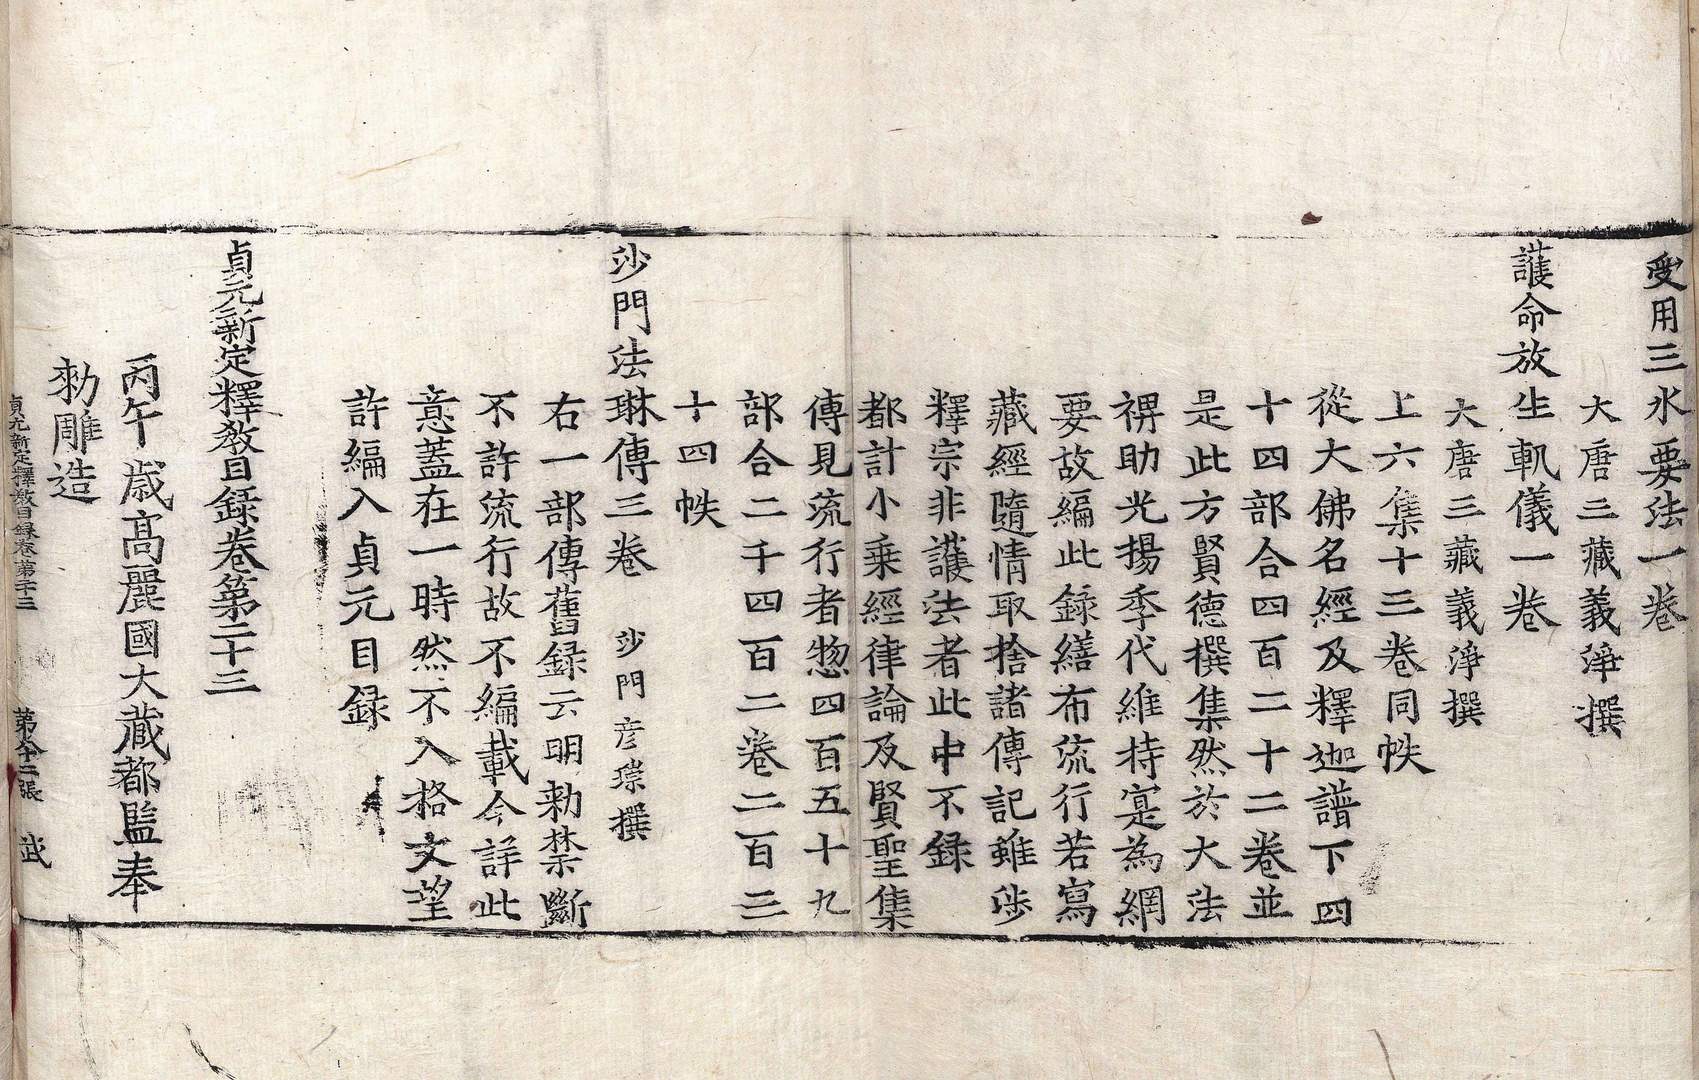 受用三水要法一卷
大唐三藏義淨撰
護命放生軌儀一卷
大唐三藏義淨撰
上六集十三卷同帙
從大佛名經及釋迦譜下四
十四部合四百二十二卷並
是此方賢德撰集然於大法
裨助光揚季代維持寔為綱
要故編此錄繕布流行若寫
藏經隨情取捨諸傳記雖涉
釋宗非護法者此中不錄
都計小乘經律論及賢聖集
傳見流行者惣四百五十九
部合二千四百二卷二百三
十四帙
沙門法琳傳三卷 沙門彦琮撰
右一部傳舊錄云明勑禁斷
不許流行故不編載今詳此
意蓋在一時然不入格文望
許編入貞元目錄
貞元新定釋教目錄卷第二十三
丙午歲高麗國大藏都監奉
勑雕造
貞元新定釋教目錄卷第二十三 第六十二張